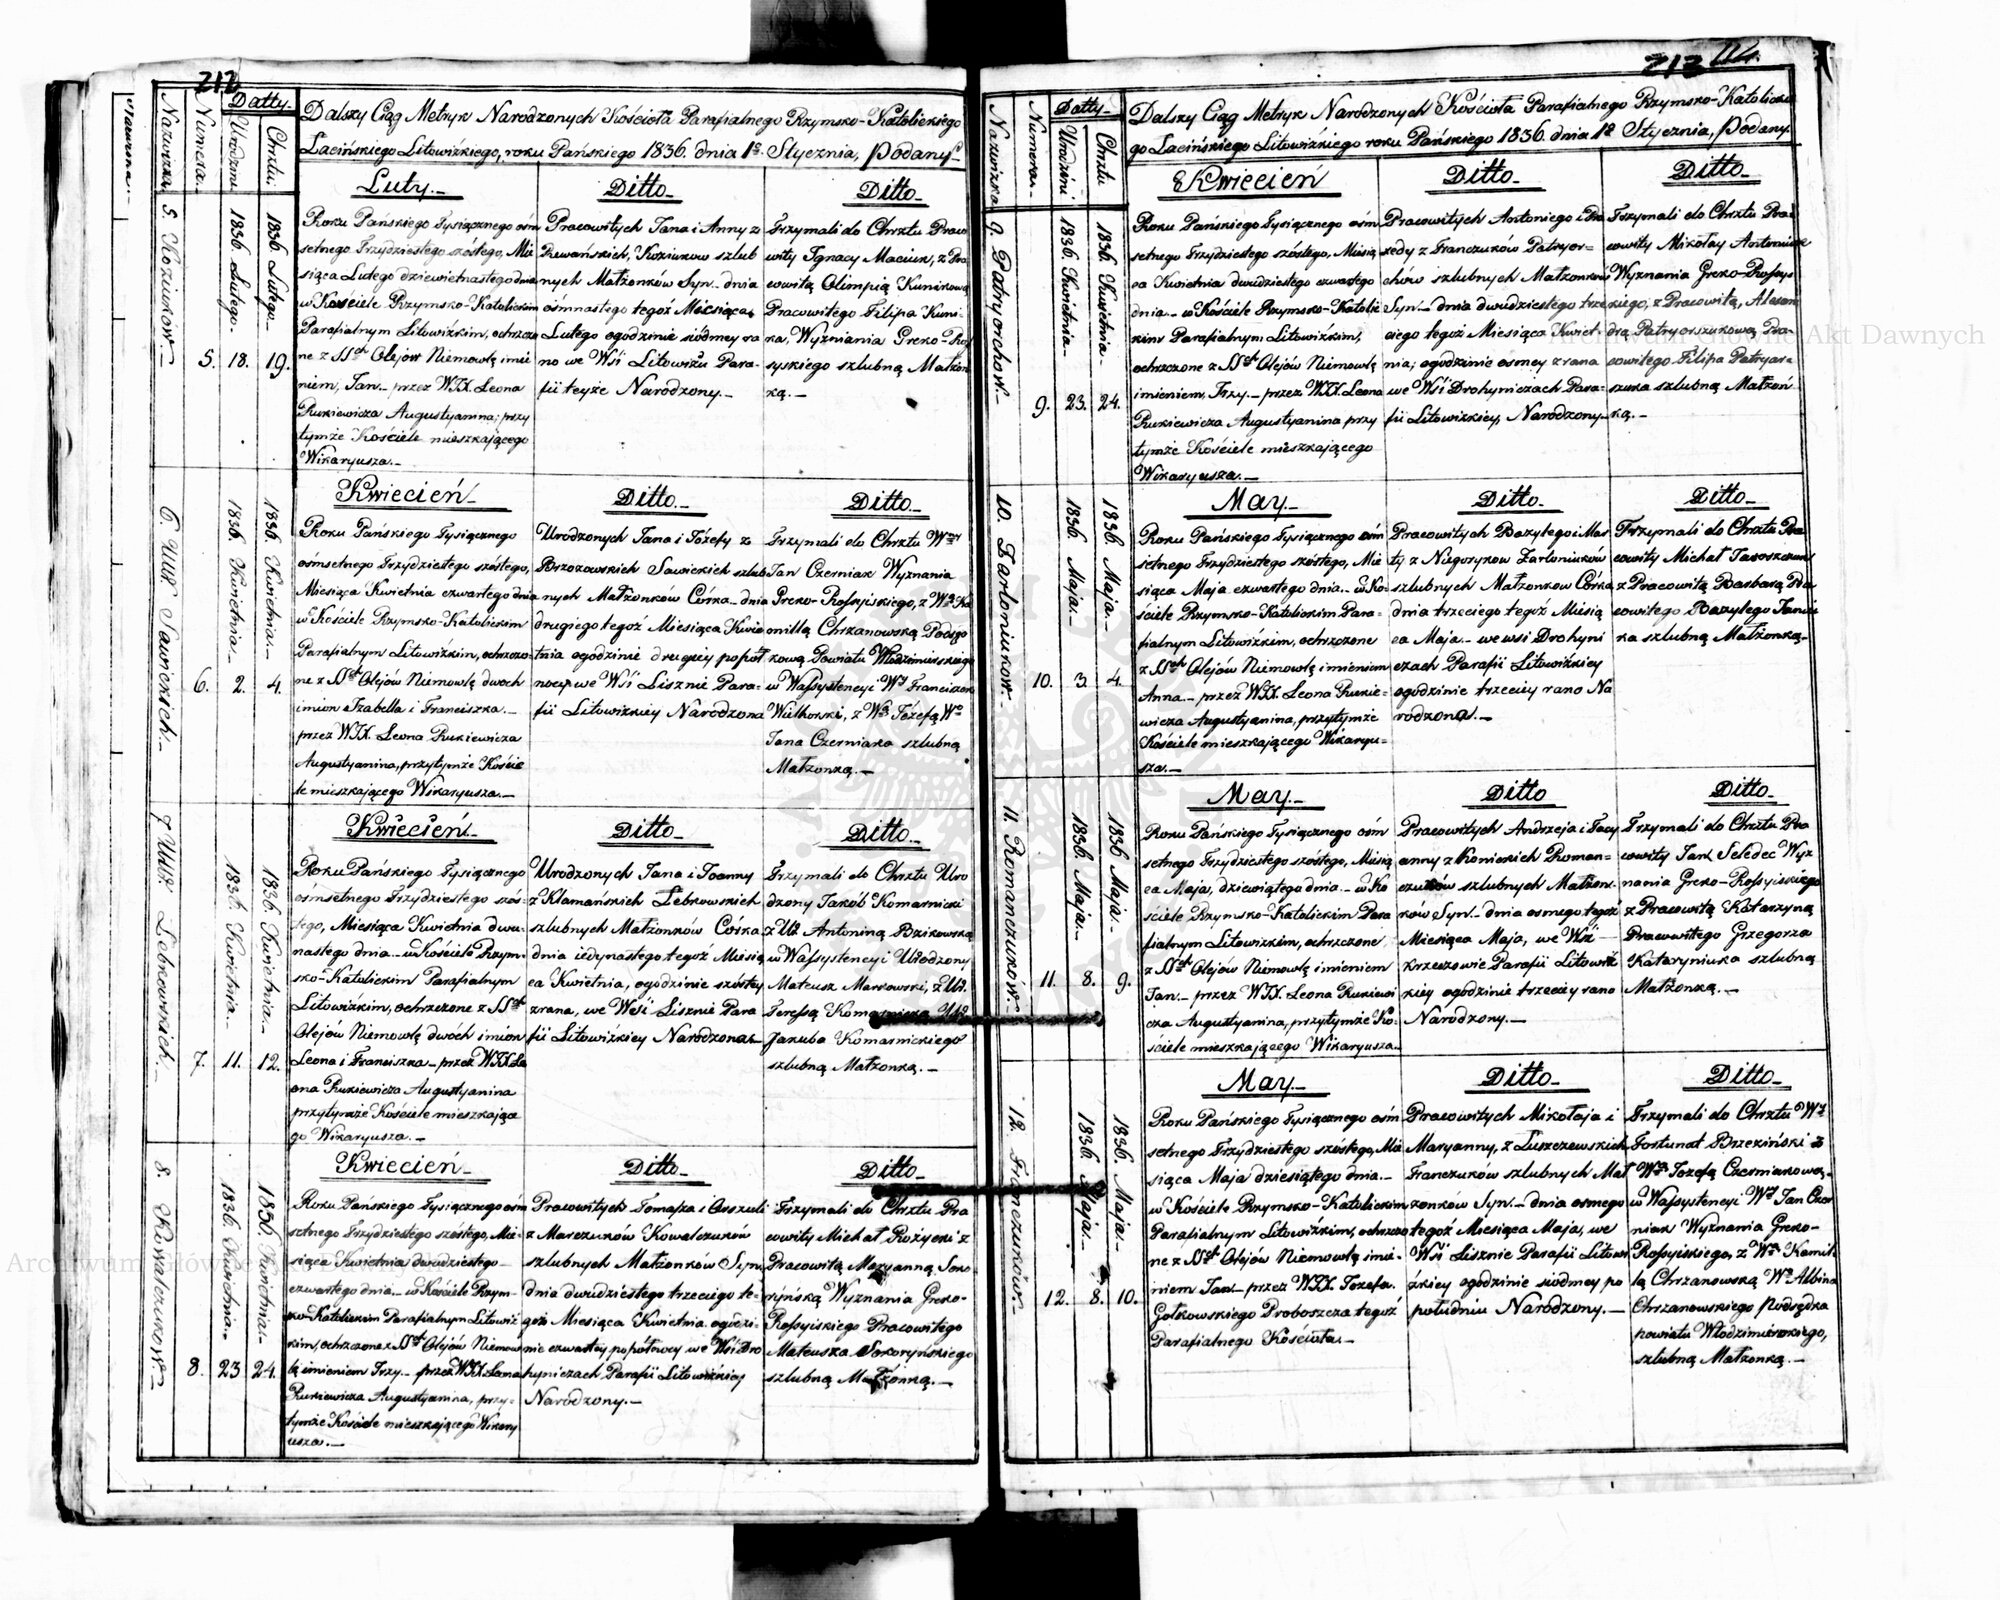 212
Nazwiska
Numera.
Datty.
Urodzin:
Chrztu:
Dalszy Ciąg Metryk Narodzonych Kościoła Parafialnego Rzymsko-Katolickiego
Łacińskiego Litowizkiego, roku Pańskiego 1836. dnia 1º Stycznia, Podany
5. Koziukow.
5.
1836. Lutego.
18.
1836. Lutego.
19.
Luty.
Roku Pańskiego Tysiącznego ośm
setnego Trzydziestego szóstego, Mie
siąca Lutego dziewiętnastego dnia
w Kościele Rzymsko-Katolickim
Parafialnym Litowizkim, ochrzczo
ne z SSch Olejów Niemowlę imie
niem, Jan.- przez WJX. Leona
Rukiewicza Augustyanina; przy
tymże Kościele mieszkającego
Wikaryusza.
Ditto
Pracowitych Jana i Anny z
Rewańskich, Koziukow szlub
nych Małżonków Syn.- dnia
ośmnastego tegoż Miesiąca
Lutego ogodzinie siódmey ra
no we Wśi Litowiżu Para-
fii teyże Narodzony.
Ditto
Trzymali do Chrztu Praco
wity Ignacy Maciuk, z Pra
cowitą Olimpią Kunikową
Pracowitego Filipa Kuni-
ka, Wyznania Greko-Ros
syskiego szlubną Małżon
ką.
6. WW Sawickich.
6.
1836. Kwietnia.
2.
1836. Kwietnia.
4.
Kwiecień
Roku Pańskiego Tysiącznego
ośmsetnego Trzydziestego szóstego,
Miesiąca Kwietnia czwartego dnia
w Kościele Rzymsko-Katolickim
Parafialnym Litowizkim, ochrzczo-
ne z SSch Olejów Niemowlę dwoch
imion Izabella i Franciszka.
przez WJX. Leona Rukiewicza
Augustyanina, przytymże Koście
le mieszkającego Wikaryusza.
Ditto
Urodzonych Jana i Józefy z
Brzozowskich Sawickich szlub
nych Małżonków Córka dnia
drugiego tegoż Miesiąca Kwie
tnia ogodzinie drugiey popół
nocy we Wśi Lisznie Para-
fii Litowizkiey Narodzona
Ditto
Trzymali do Chrztu Wny
Jan Czerniak Wyznania
Greko-Rossyiskiego, z Wą Ka
millą Chrzanowską Podsęd
kową Powiatu Włodzimirskiego
w Wassystencyi Wy Franciszek
Wilhorski, z Wą Józefą Wo
Jana Czerniaka szlubną
Małżonką.
7 WW Lebkowskich.
7.
1836. Kwietnia.
11.
1836. Kwietnia.
12.
Kwiecień.
Roku Pańskiego Tysiącznego
ośmsetnego Trzydziestego szós-
tego, Miesiąca Kwietnia dwu-
nastego dnia w Kościele Rzym-
sko-Katolickim Parafialnym
Litowizkim, ochrzczone z SSch
Olejów Niemowlę dwoch imion
Leona i Franciszka przez WJX Le
ona Rukiewicza Augustyanina
przytymże Kościele mieszkające
go Wikaryusza.
Ditto
Urodzonych Jana i Joanny
z Klamańskich Lebkowskich
szlubnych Małżonków Córka
dnia iedynastego tegoż Miesią
ca Kwietnia, ogodzinie szóstey
zrana, we Wśi Lisznie Para
fii Litowizkiey Narodzona
Ditto
Trzymali do Chrztu Uro
dzony Jakób Komarnicki
z Urą Antoniną Bzikowską
w Wassystencyi Urodzony
Mateusz Markowski, z Ur.
Teressą Komarnicką Uro
Jakuba Komarnickiego
szlubną Małżonką.
8. Kowalczukow.
8.
1836. Kwietnia.
23
1836. Kwietnia.
24.
Kwiecień
Roku Pańskiego Tysiącznego ośm
setnego Trzydziestego szóstego, Mie-
siąca Kwietnia dwudziestego
czwartego dnia w Kościele Rzym-
sko-Katolickim Parafialnym Litowiz
kim, ochrzczone z SSch Olejów Niemow
lę imieniem Trzy. przez WJX. Leona
Rukiewicza Augustyanina, przy-
tymże Kościele mieszkającego Wikary
usza.
Ditto
Pracowitych Tomasza i Orszuli
z Marczuków Kowalczuków
szlubnych Małżonków Syn
dnia dwudziestego trzeciego te-
goż Miesiąca Kwietnia ogodzi-
nie czwartey popółnocy we Wśi Dro
hyniczach Parafii Litowizkiey
Narodzony.
Ditto
Trzymali do Chrztu Pra
cowity Michał Rożycki z
Pracowitą Maryanną Soko
ryńską Wyznania Greko-
Rossyiskiego Pracowitego
Mateusza Sokoryńskiego
szlubną Małżonką.
213
Nazwiska
Numera.
Datty.
Urodzin:
Chrztu
Dalszy Ciąg Metryk Narodzonych Kościoła Parafialnego Rzymsko-Katolickie
go Łacińskiego Litowizkiego roku Pańskiego 1836. dnia 1º Stycznia, Podany.
9. Patryorchow.
9.
1836. Kwietnia.
23.
1836. Kwietnia.
24.
Kwiecień
Roku Pańskiego Tysiącznego ośm
setnego Trzydziestego szóstego, Miesią
ca Kwietnia dwudziestego czwartego
dnia w Kościele Rzymsko-Katolic
kim Parafialnym Litowizkim,
ochrzczone z SSch Olejów Niemowlę
imieniem Trzy. przez WJX. Leona
Rukiewicza Augustyanina przy
tymże Kościele mieszkającego
Wikaryusza.
Ditto
Pracowitych Antoniego i Pra
xedy z Franczuków Patryor=
chów szlubnych Małżonków
Syn dnia dwudziestego trze
ciego tegoż Miesiąca Kwiet-
nia, ogodzinie osmey zrana
we Wśi Drohyniczach Para-
fii Litowizkiey, Narodzony.
Ditto
Trzymali do Chrztu Pra
cowity Mikołay Antoniuk
Wyznania Greko-Rossys
kiego, z Pracowitą, Alexan
drą Patryorszukową Pra-
cowitego Filipa Patryar-
szuka szlubną Małżon
ką.
10. Zarloniukow.
10.
1836. Maja.
3.
1836. Maja.
4.
May.
Roku Pańskiego Tysiącznego ośm
setnego Trzydziestego szóstego, Mie
siąca Maja czwartego dnia. w Ko
ściele Rzymsko-Katolickim Para-
fialnym Litowizkim, ochrzczone
z SSch Olejów Niemowlę imieniem
Anna przez WJX. Leona Rukie=
wicza Augustyanina, przytymże
Kościele mieszkającego Wikaryu=
sza.
Ditto
Pracowitych Bazylego i Mar
ty z Nigoryxow Zarloniuków
szlubnych Małżonkow Córka
dnia trzeciego tegoż Miesią
ca Maja we wsi Drohyni
czach Parafii Litowizkiey
ogodzinie trzeciey rano Na
rodzona.
Ditto
Trzymali do Chrztu Pra
cowity Michał Tarosz
z Pracowitą Barbarą Pra
cowitego Bazylego Janiu
ka szlubną Małżonką.
11. Romanczukow.
11.
1836. Maja.
8.
1836. Maja.
9.
May.
Roku Pańskiego Tysiącznego ośm
setnego Trzydziestego szóstego, Miesią
ca Maja, dziewiątego dnia. w Ko
ściele Rzymsko-Katolickim Para
fialnym Litowizkim, ochrzczone
z SSch Olejów Niemowlę imieniem
Jan. przez WJX. Leona Rukiewi
cza Augustyanina, przytymże Ko-
ściele mieszkającego Wikaryusza.
Ditto
Pracowitych Andrzeja i Tacy
anny z Konickich Roman=
czuków szlubnych Małżon
ków Syn. dnia osmego tegoż
Miesiąca Maja, we Wśi
Krzeczowie Parafii Litowiz
kiey ogodzinie trzeciey rano
Narodzony.
Ditto
Trzymali do Chrztu Pra
cowity Jan Seledec Wyz
nania Greko-Rossyiskiego
z Pracowitą Katarzyną
Pracowitego Grzegorza
Kataryniuka szlubną
Małżonką.
12. Franczuków.
12.
1836. Maja.
8.
1836. Maja.
10.
May.
Roku Pańskiego Tysiącznego ośm
setnego Trzydziestego szóstego, Mie
siąca Maja dziesiątego dnia.
w Kościele Rzymsko-Katolickim
Parafialnym Litowizkim, ochrzczo
ne z SSch Olejów Niemowlę imie=
niem Jan przez WJX. Józefa
Gołkowskiego Proboszcza tegoż
Parafialnego Kościoła.
Ditto
Pracowitych Mikołaja i
Maryanny, z Luszczewskich
Franczuków szlubnych Mał
zonków Syn. dnia osmego
tegoż Miesiąca Maja, we
Wśi Lisznie Parafii Litowi
zkiey ogodzinie siodmey po
południu Narodzony.
Ditto
Trzymali do Chrztu Wy
Fortunat Brzeziński z
Wą Józefą Czerniakową,
w Wassystencyi Wy Jan Czer
niak Wyznania Greko-
Rossyiskiego, z Wą Kamil
lą Chrzanowską Wo Albina
Chrzanowskiego Podsędka
powiatu Włodzimirskiego,
szlubną Małżonką.
Archiwum Główne Akt Dawnych
Archiwum Główne Akt Dawnych